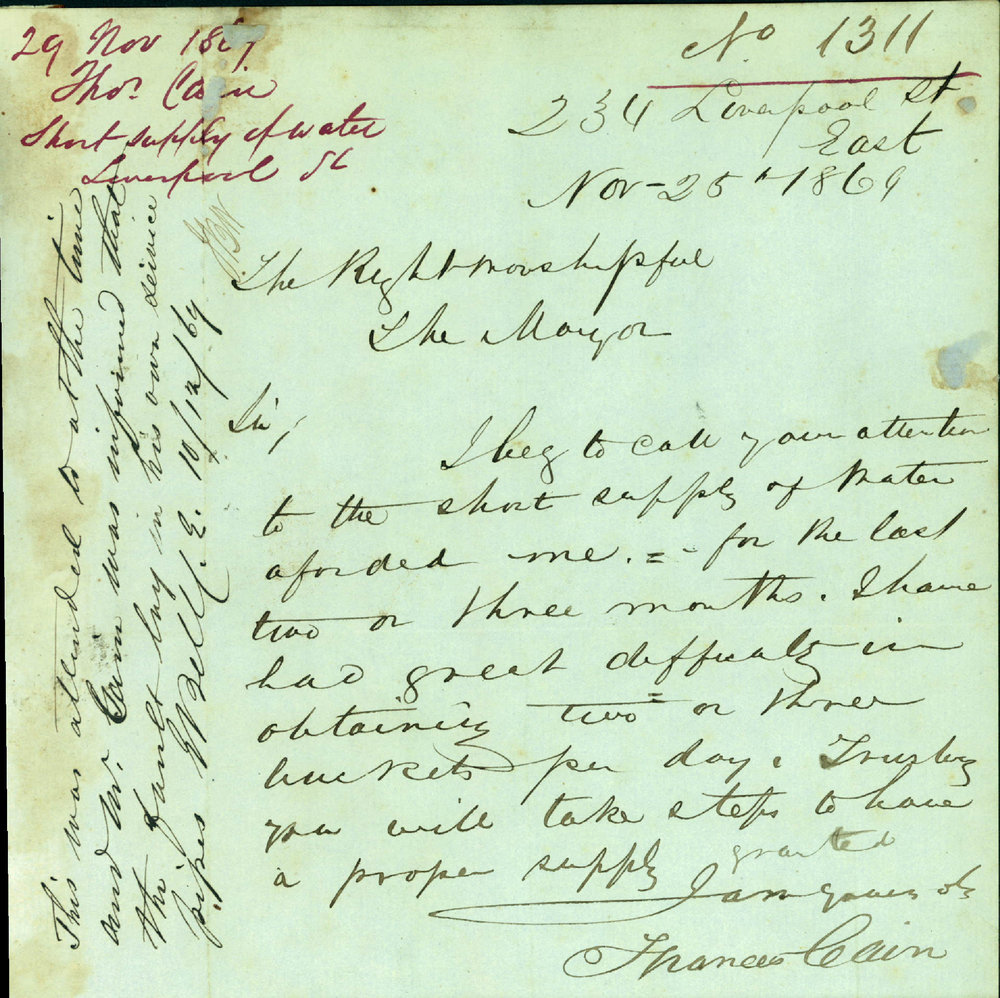 29 Nov 1869
Thos. Cain
Short supply of water
Liverpool St
No 1311
234 Liverpool St.
East
Nov-25th 1869
The Right Worshipful
The Mayor
Sir,
I beg to call your attention
to the short supply of water
aforded me. = - for the last
two or three months. I have
had great difficulty in
obtaining two = or three
buckets per day. Trusting
you will take steps to have
a proper supply granted
I am yours &c
Frances Cain
This was attended to at the time
and Mr. Cain was informed that
the fault lay in his own service
pipes EBell C.E. 10/12/69